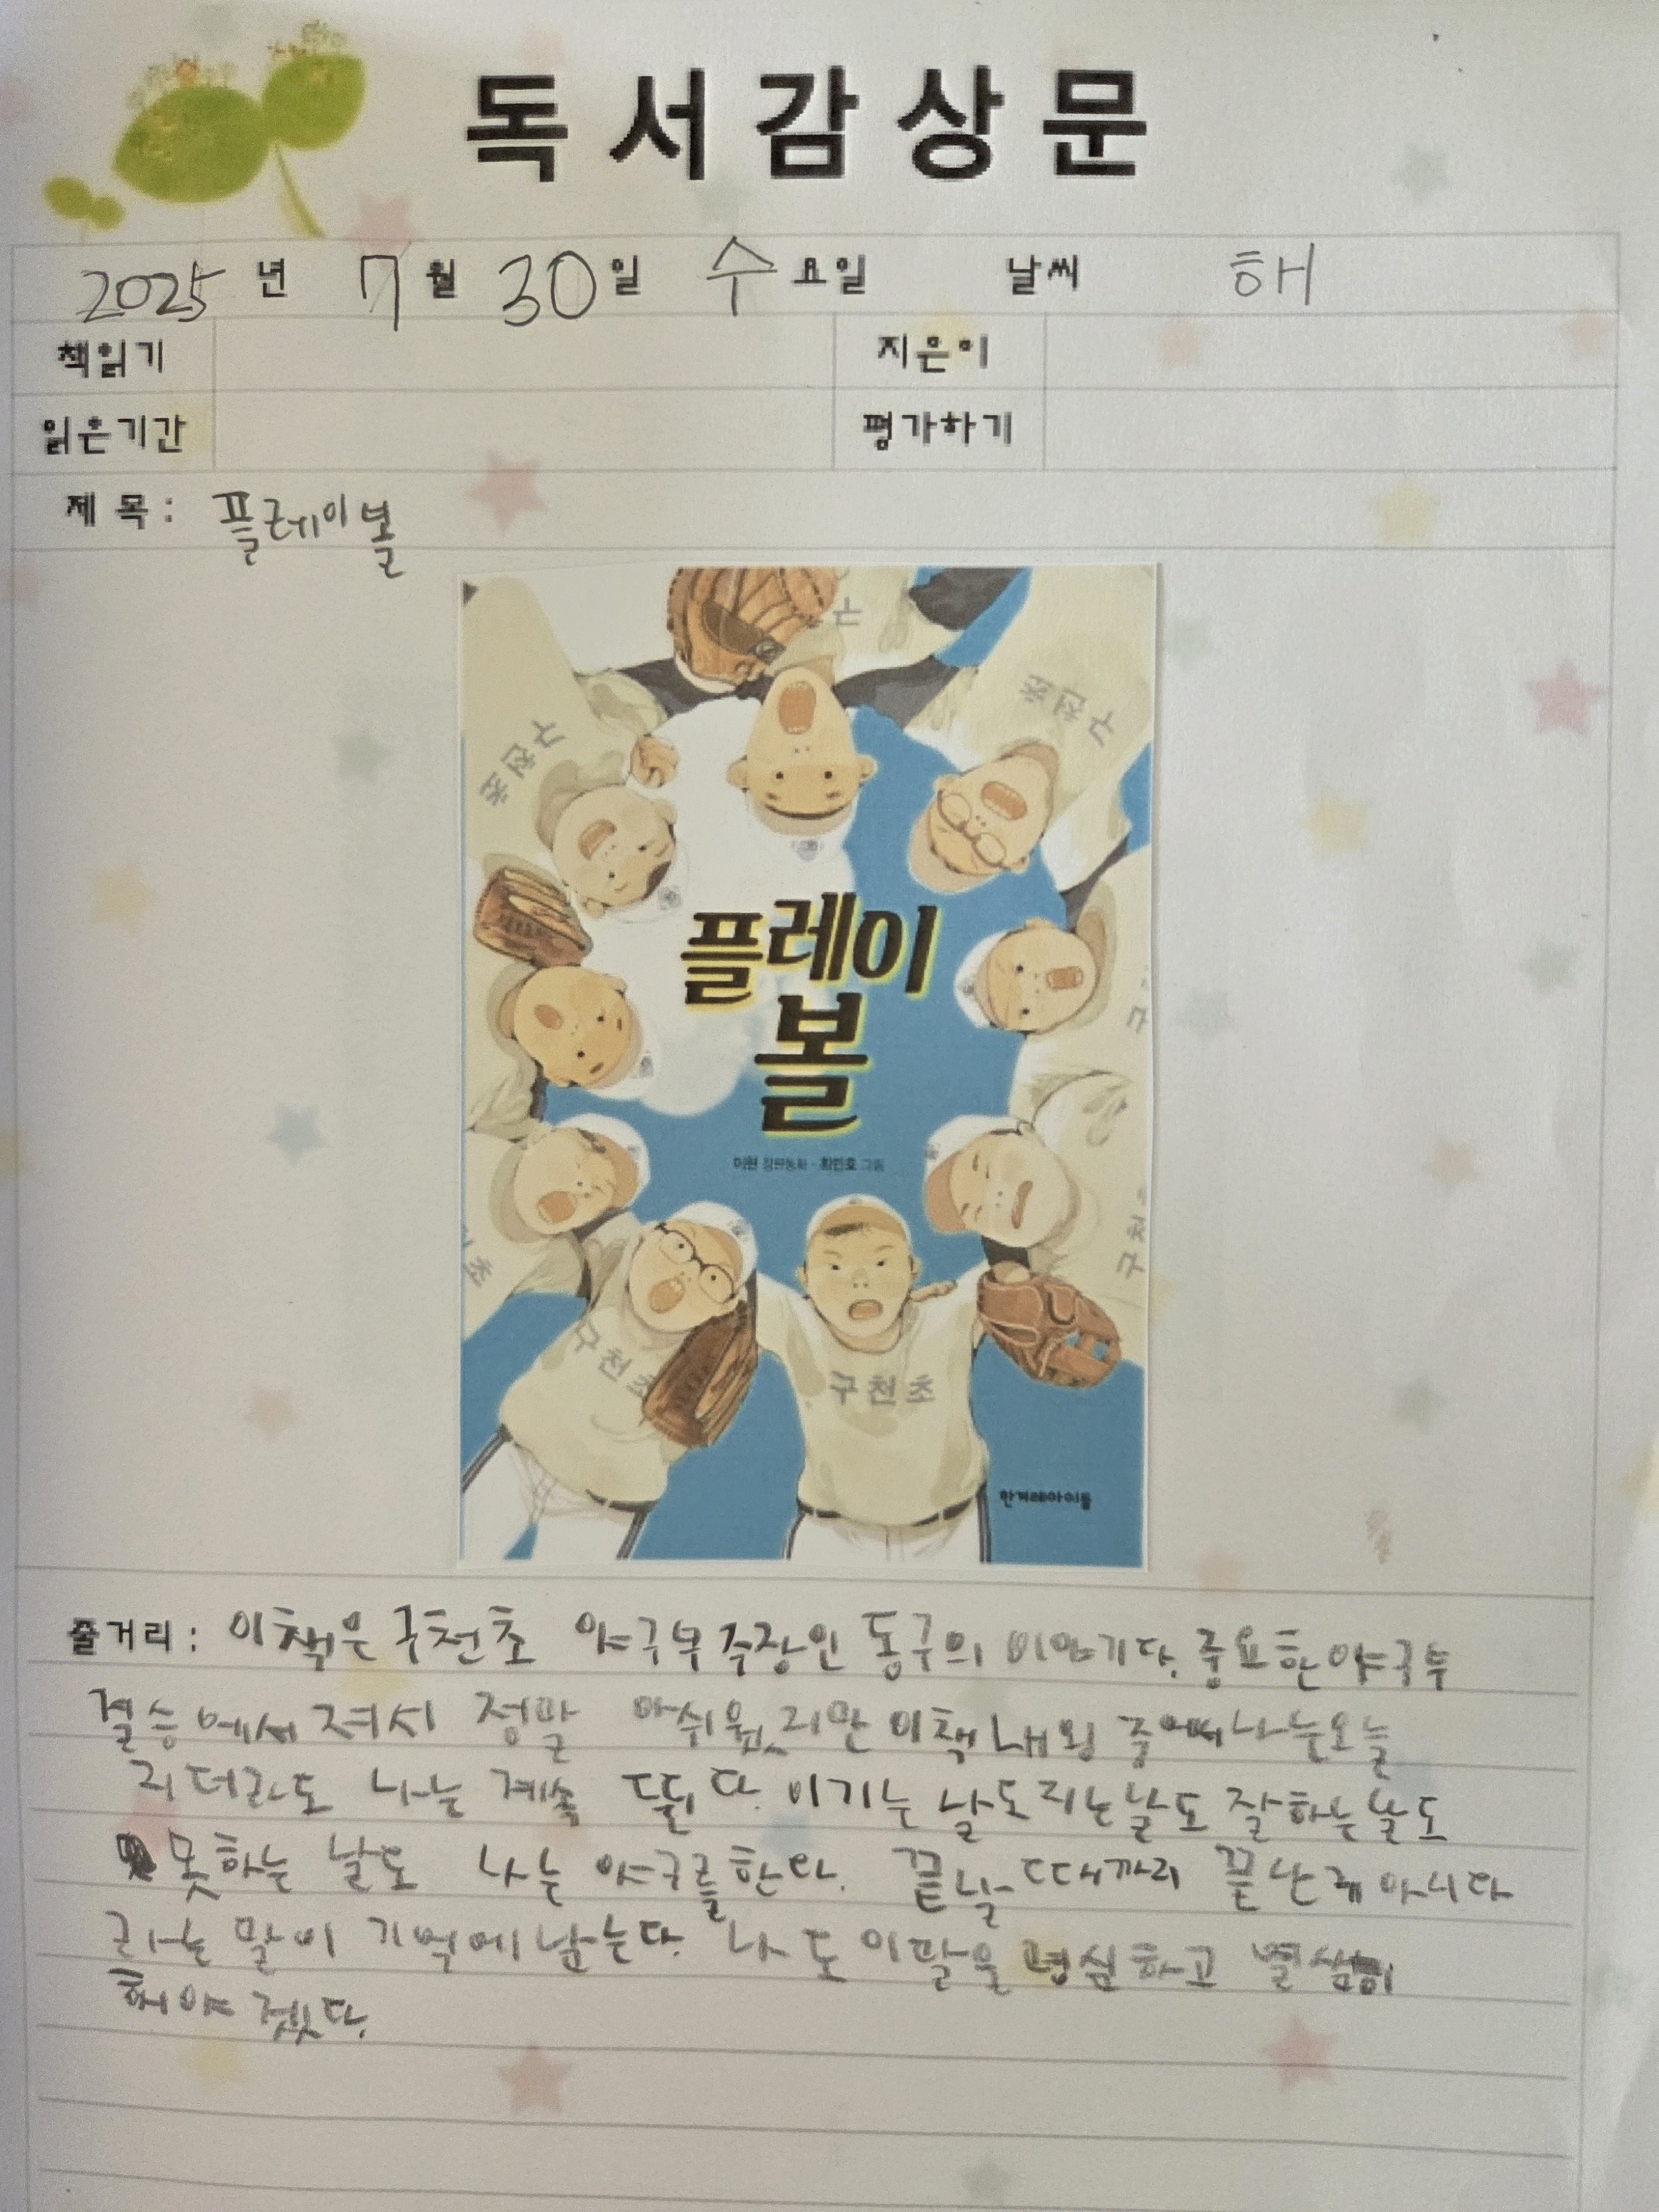 독서감상문
2025년 7월 30일 수요일 날씨 해
책읽기 지은이
읽은기간 평가하기
제목: 플레이볼
구
구천초
구천초
플레이
볼
이현 장편동화·최민호 그림
구천
초
구천초
구천초
한겨레아이들
줄거리: 이책은 구천초 야구부 주장인 동구의 이야기다. 중요한 야구부
결승에서 져서 정말 아쉬웠지만 이책 내용 중에서 나는 오늘
지더라도 나는 계속 뛴다. 이기는 날도 지는 날도 잘하는 날도
못하는 날도 나는 야구를 한다. 끝날 때까지 끝난게 아니다
라는 말이 기억에 남는다. 나도 이말을 명심하고 열심히
해야겠다.